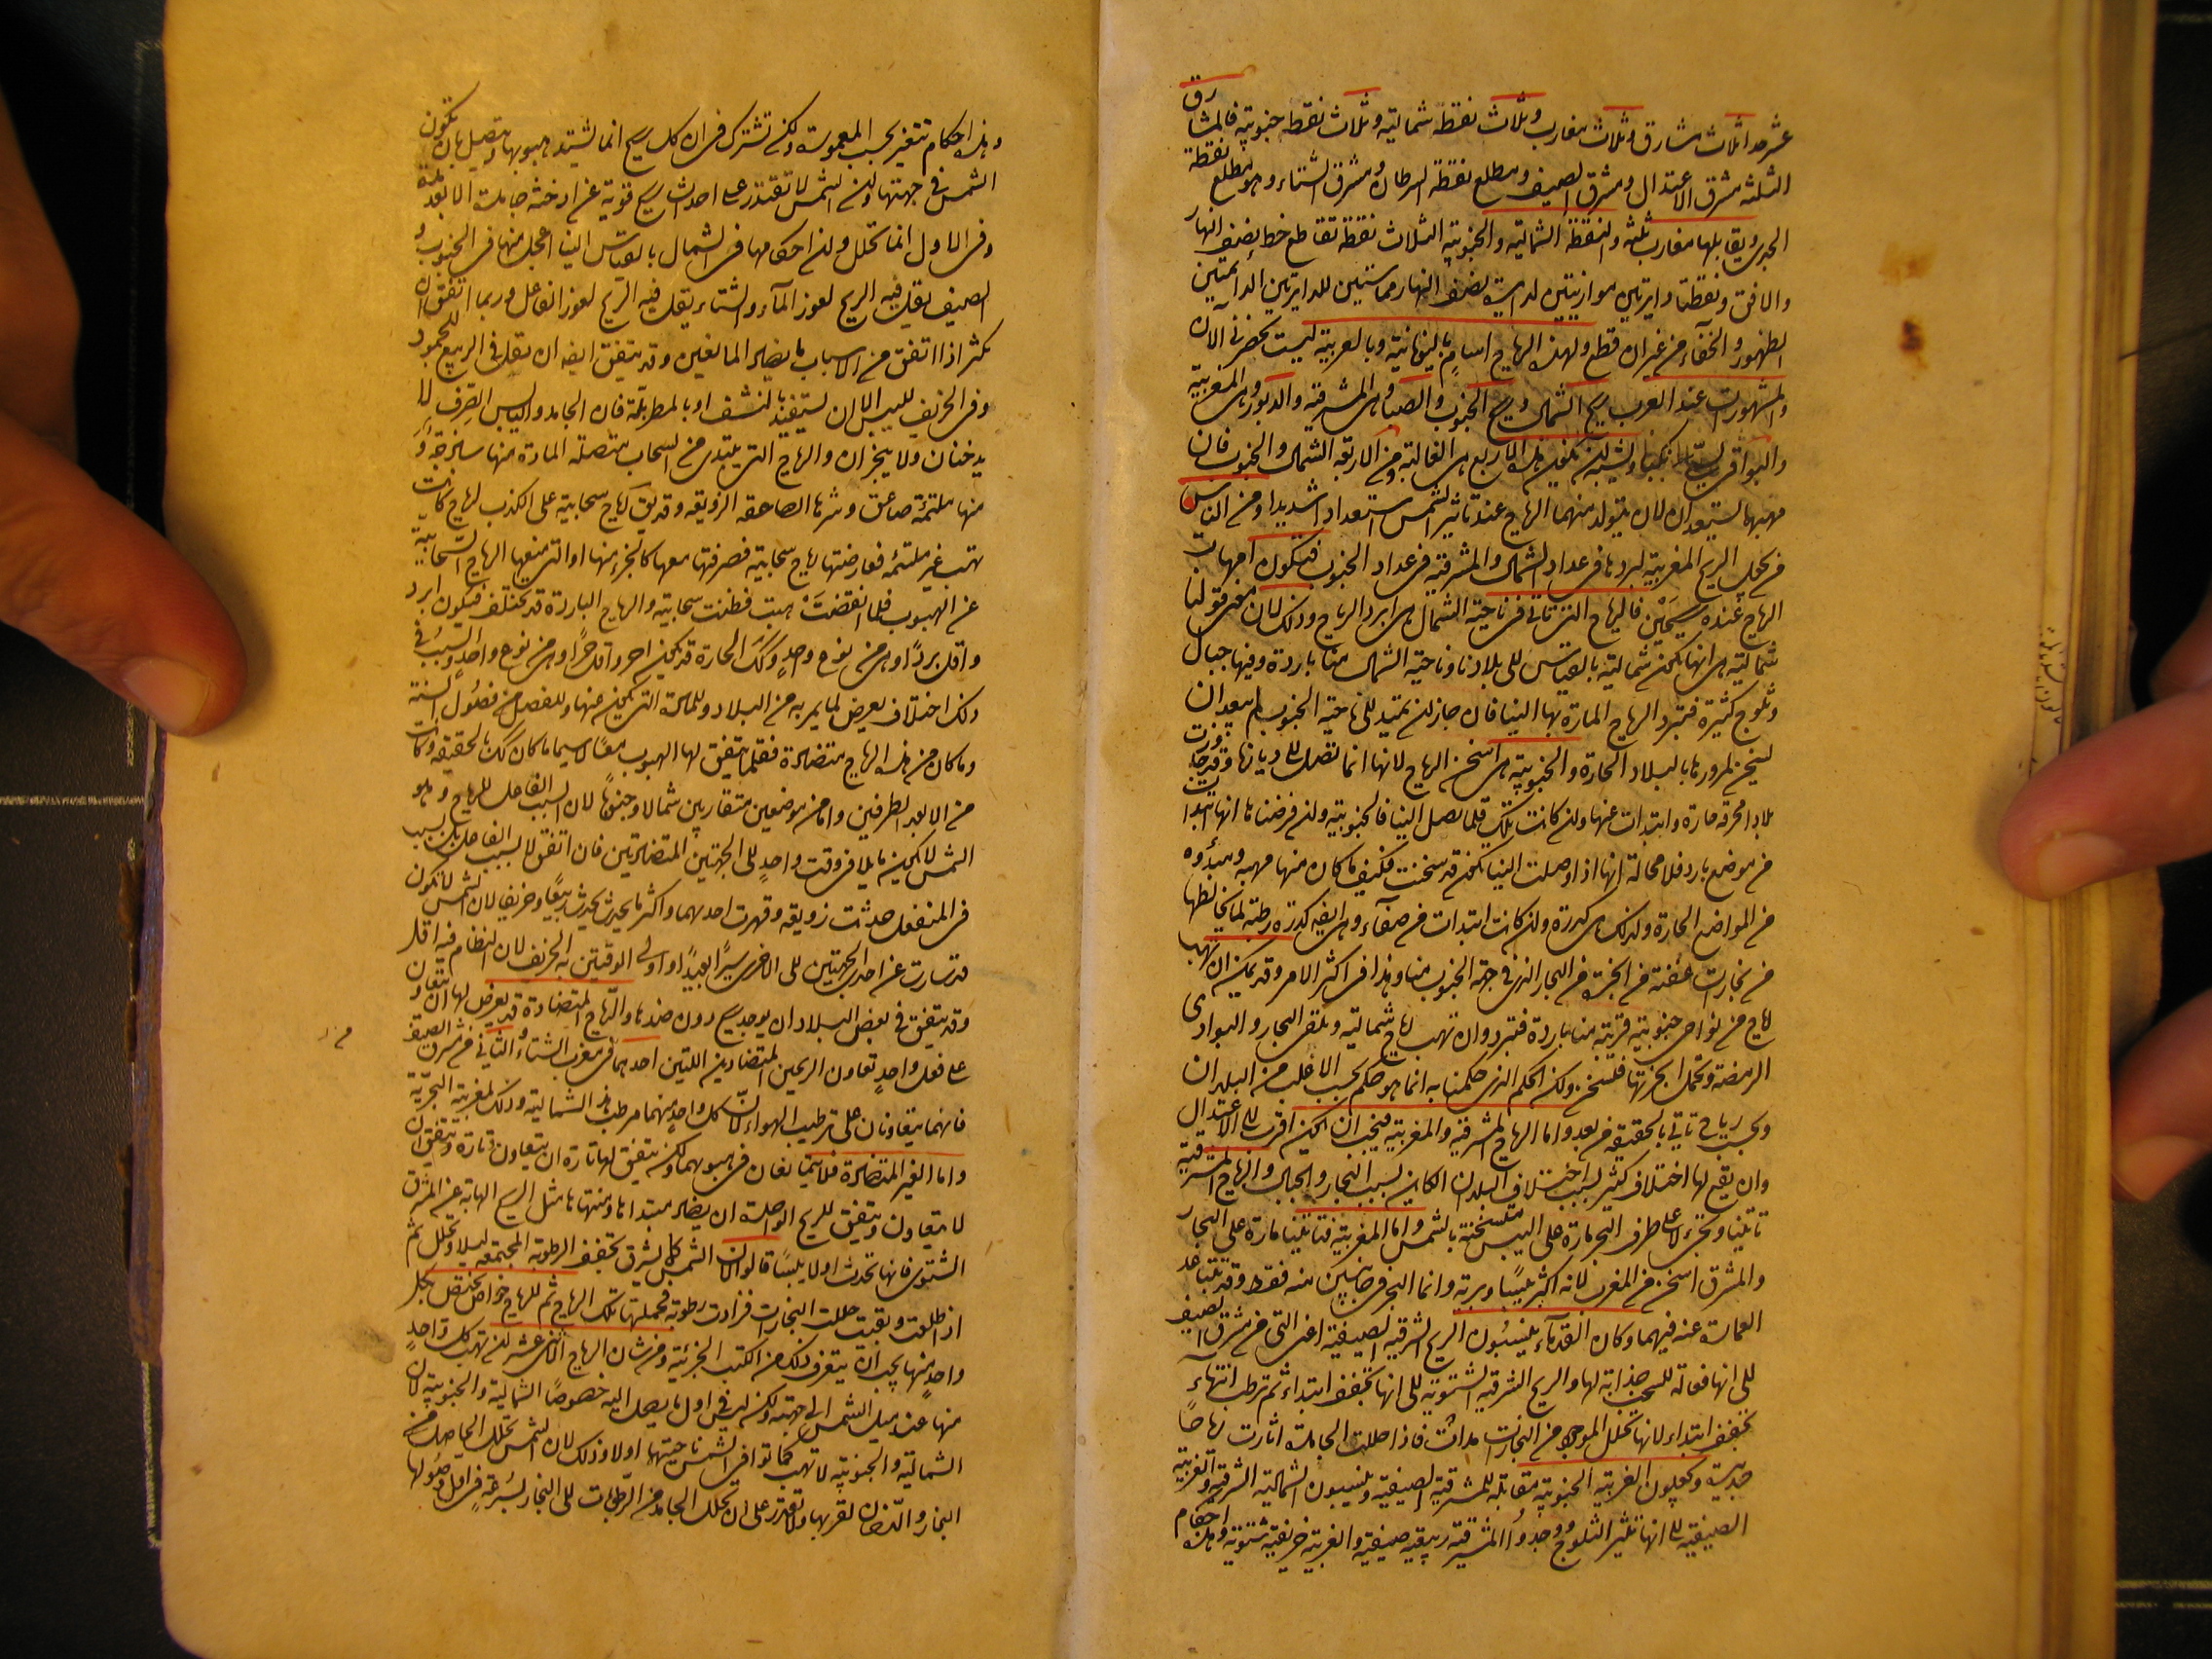 عشر حدا ثلاث مشارق وثلاث مغارب وثلاث نقطة شمالية وثلاث نقطة جنوبية فالمشارق
الثلثه مشرق الاعتدال ومشرق الصيف ومطلع نقطة السرطان ومشرق الشتاء وهو مطلع نقطة
الجدى ويقابلها مغارب ثلثه والنقطة الشمالية والجنوبية الثلاث نقطة تقاطع خط نصف النهار
والافق ونقطتا دايرتين موازيتين لدايرة نصف النهار مماستين للدايرتين الدايمتين
الظهور والخفاء من غير ان قطع ولهذه الرياح اسام باليونانية وبالعربية ليست تحضرنى الان
والمشهورات عند العرب ريح الشمال وريح الجنوب والصبا وهى المشرقية والدبور وهى المغربية
والبواقى تسمى نكبا ويشبه ان تكون هذه الاربع هى الغالبة ومن الاربعة الشمال والجنوب فان
مهبهما يستعدان لان يتولد منهما الرياح عند تاثير الشمس استعدادا شديدا ومن الناس
من يجعل الريح المغربية لبردها فى عداد الشمال والمشرقية فى عداد الجنوب فتكون امهات
الرياح عنده ريحين فالرياح التى تاتى فى ناحية الشمال هى ابرد الرياح وذلك لان معنى قولنا
شمالية هى انها تكون شمالية بالقياس الى بلادنا وناحية الشمال منا باردة وفيها جبال
وثلوج كثيرة فتبرد الرياح المارة بها الينا فان جاز ان تمتد الى ناحية الجنوب لم يبعد ان
تسخن لمرورها بالبلاد الحارة والجنوبية هى اسخن الرياح لانها انما تصل الى ديارنا وقد جاوزت
بلادا محرقة حارة وابتدات عنها وان كانت تلك قلما يصل الينا فالجنوبية وان فرضناها انها تبتدا
من موضع بارد فلا محالة انها اذا وصلت الينا تكون قد سخنت فكيف ما كان منها مهبه ومبدؤه
من المواضع الحارة ولذلك هى كدرة وان كانت ابتدات من صفاء وهى ايضه كدرة رطبة لما يخالطها
من بخارات عفنة من ابخرة من البحار التى فى جهة الجنوب منا وهذا فى اكثر الامر وقد يمكن ان تهب
رياح من نواحى جنوبية قريبة منا باردة فتبرد وان تهب رياح شمالية وتلقى البحار والبوادى
الرمضة وتحمل ابخرتها فتسخن ولكن الحكم الذى حكمنا به انما هو حكم بحسب الاغلب من البلدان
وبحسب رياح تاتى بالحقيقة من بعد واما الرياح المشرقية والمغربية فيجب ان تكون اقرب الى الاعتدال
وان يقع لها اختلاف كثير بسبب اختلاف البلدان الكاين بسبب البحار والجبال والرياح المشرقية
تاتينا وتجرى لا على طرف البحر مارة على اليبس متسخنة بالشمس واما المغربية فتاتينا مارة على البحار
والمشرق اسخن من المغرب لانه اكثر يبسا وبرية وانما البحر فى جانبين منه فقط وقد تتباعد
العمارة عنه فيهما وكان القدماء ينسبون الريح الشرقية الصيفية اعنى التى من مشرق الصيف
الى انها فعالة للسحب جذابة لها والريح الشرقية الشتوية الى انها تجفف ابتداء ثم ترطب انتهاء
تجفف ابتداء لانها تحلل الموجود من البخارات مدة فاذا حللت الجامد اثارت رياحا
جديدة ويجعلون الغربية الجنوبية مقابلة للمشرقية الصيفية وينسبون الشمالية الشرقية والغربية
الصيفية الى انها تثير الثلوج ووجدوا المشرقية ربيعية صيفية والغربية خريفية شتوية وهذه احكام
وهذه احكام تتغير بحسب المعمورة ولكن تشترك فى ان كل ريح انما تشتد هبوبها ويتصل بان تكون
الشمس فى جهتها ولان الشمس لا تقتدر على احداث ريح قوية عن ادخنة جامدة الا بعد مدة
وفى الاول انما تحلل ولان احكامها فى الشمال بالقياس الينا اعجل منها فى الجنوب و
الصيف يقل فيه الريح لعوز المآء والشتاء يقل فيه الريح لعوز الفاعل وربما اتفق ان
تكثر اذا اتفق من الاسباب ما يضاد المانعين وقد يتفق ايضه ان تقل فى الربيع للجمود
وفى الخريف لليبس الا ان يستفيد بالنشف او بالمطر بلة فان الجامد واليابس الصرف لا
يدخنان ولا يبخران والرياح التى تبتدى من السحاب متصلة المادة منها ساذجة و
منها ملتئمة صاعق وشرها الصاعقة الزوبعة وقد يق رياح سحابية على الكذب لرياح كانت
تهب غير ملتئمة فعارضتها رياح سحابية فصرفتها معها كالجزء منها او التى منعها الرياح السحابية
عن الهبوب فلما انقضت هبت فظنت سحابية والرياح الباردة قد تختلف فيكون ابرد
واقل بردا وهى من نوع واحد وكك الحارة قد تكون احر واقل حرا وهى من نوع واحد والسبب فى
ذلك اختلاف يعرض لما يمر به من البلاد وللمادة التى تكون عنها وللفصل من فصول السنة
وما كان من هذه الرياح متضادة فقلما يتفق لها الهبوب معا لا سيما ما كان كك بالحقيقة وكانت
من الابعد الطرفين واما من موضعين متقاربين شمالا وجنوبا لان السبب الفاعل للرياح وهو
الشمس لا يكون مايلا فى وقت واحد الى الجهتين المتضادتين فان اتفق لا لسبب الفاعل بل لسبب
فى المنفعل حدثت زوبعة وقهرت احديهما واكثر ما يحدث يحدث ربيعا وخريفا لان الشمس لا تكون
قد سارت عن احدى الجهتين الى الاخرى سيرا بعيدا واولى الوقتين به الخريف لان النظام فيه اقل
وقد يتفق فى بعض البلاد ان يوجد ريح دون ضدها والرياح المتضادة قد يعرض لها ان يتعاون
على فعل واحد تعاون الريحين المتضادين اللتين احدهما فى مغرب الشتاء والثانى من مشرق الصيف
فانهما يتعاونان على ترطيب الهواء لان كل واحد منهما مرطب هذه الشمالية وذلك لمغربية البحرية
واما الغير المتضادة فلا يتمانعان فى هبوبهما ولكن يتفق لها تارة ان يتعاون وتارة يتفق ان
لا يتعاون ويتفق للريح الواحدة ان يضاد مبتداها ومنتهاها مثل الريح الهابة عن المشرق
الشتوى فانها تحدث اولا يبسا قالوا لان الشمس كما يشرق تجفف الرطوبة المجتمعة ليلا وتحلل ثم
اذا طلعت وبقيت حللت البخارات فزادت رطوبة فحملتها تلك الرياح ثم للرياح خواص تختص بكل
واحد منها يجب ان يتعرف ذلك من الكتب الجزئية ومن شان الرياح الاثنى عشر ان تهب كل واحد
منها عند ميل الشمس الى جهته ولكن ليس فى اول ما يصل اليه خصوصا الشمالية والجنوبية لان
الشمالية والجنوبية لا تهب كما توافى الشمس ناحيتها اولا وذلك لان الشمس تحلل الحاصل من
البخار والدخان لقربها ولا تقتدر على ان تحلل الجامد من الرطوبات الى البخار بسرعة فى اول وصولها